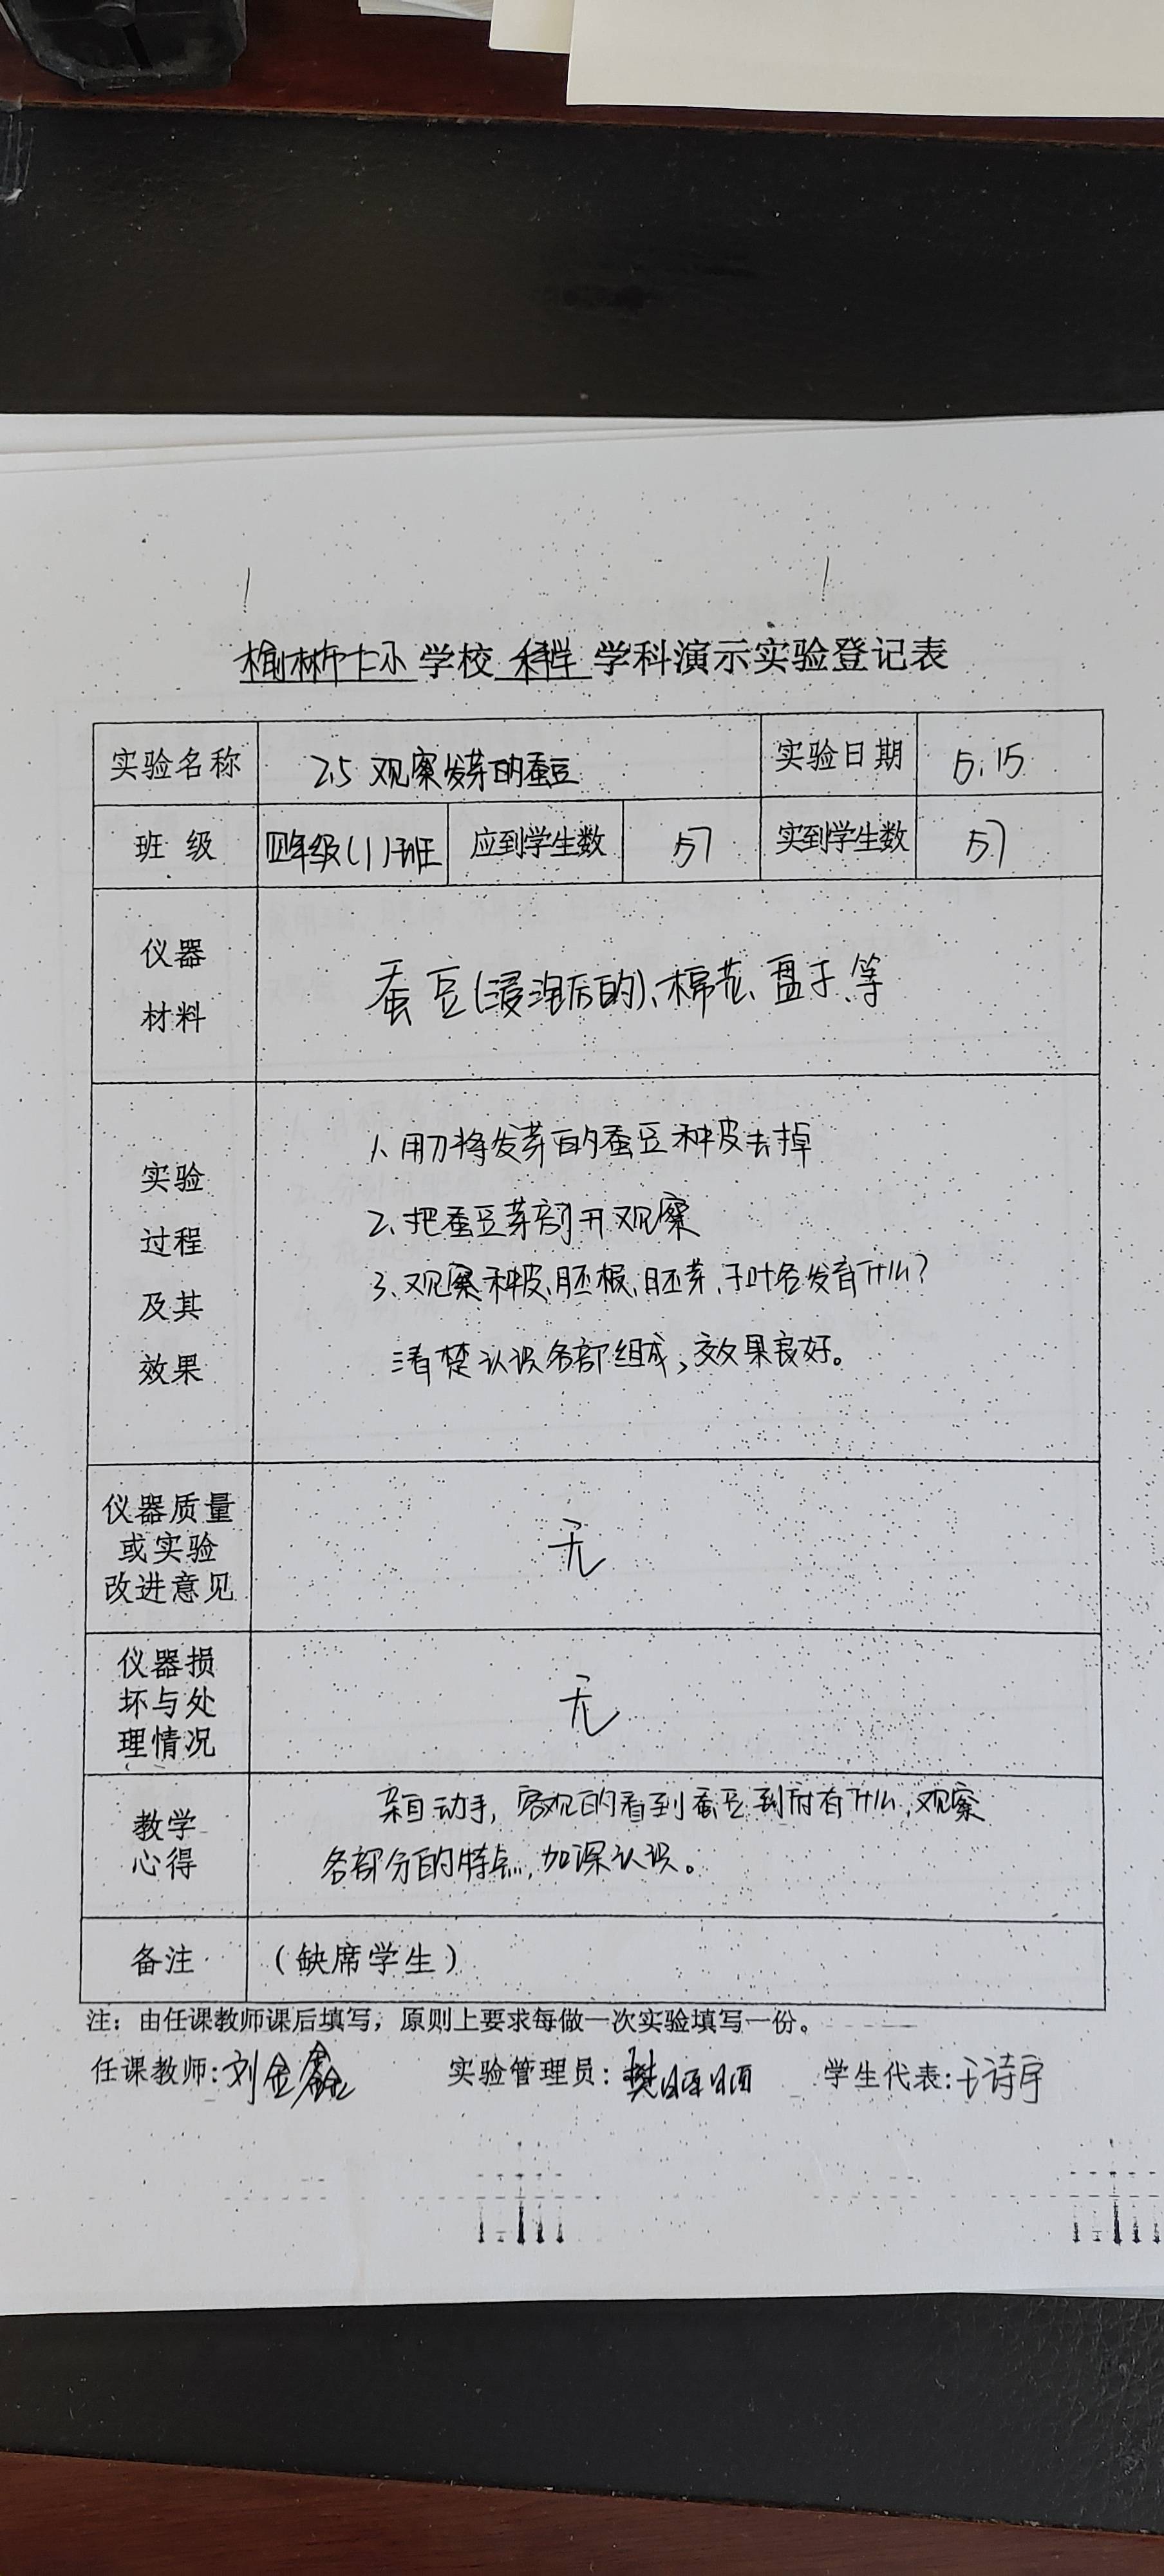 榆林市七小学校科学学科演示实验登记表
实验名称 2.5 观察发芽的蚕豆 实验日期 5.15
班 级 四年级(1)班 应到学生数 57 实到学生数 57
仪器
材料
蚕豆(浸泡后的)、棉花、盘子、等
实验
过程
及其
效果
1.用刀将发芽的蚕豆种皮去掉
2.把蚕豆芽剖开观察
3.观察种皮、胚根、胚芽、子叶各发育什么?
清楚认识各部组成,效果良好。
仪器质量
或实验
改进意见
无
仪器损
坏与处
理情况
无
教学
心得
亲自动手,客观的看到蚕豆到底有什么,观察
各部分的特点,加深认识。
备注 (缺席学生)
注:由任课教师课后填写,原则上要求每做一次实验填写一份。
任课教师:刘金鑫 实验管理员:樊 学生代表:王诗宇